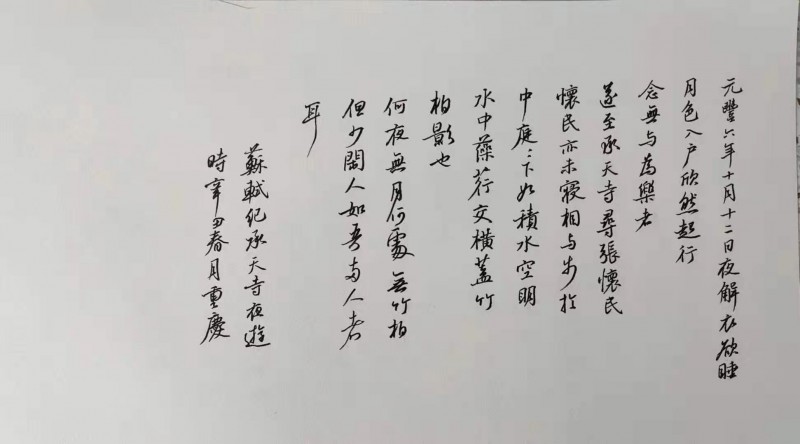 元豐六年十月十二日夜解衣欲睡
月色入户欣然起行
念無与為樂者
遂至承天寺尋張懷民
懷民亦未寢相与步於
中庭：下如積水空明
水中藻荇交横蓋竹
柏影也
何夜無月何處無竹柏
但少閑人如吾两人者
耳
蘇軾紀承天寺夜遊
時辛丑春月重慶